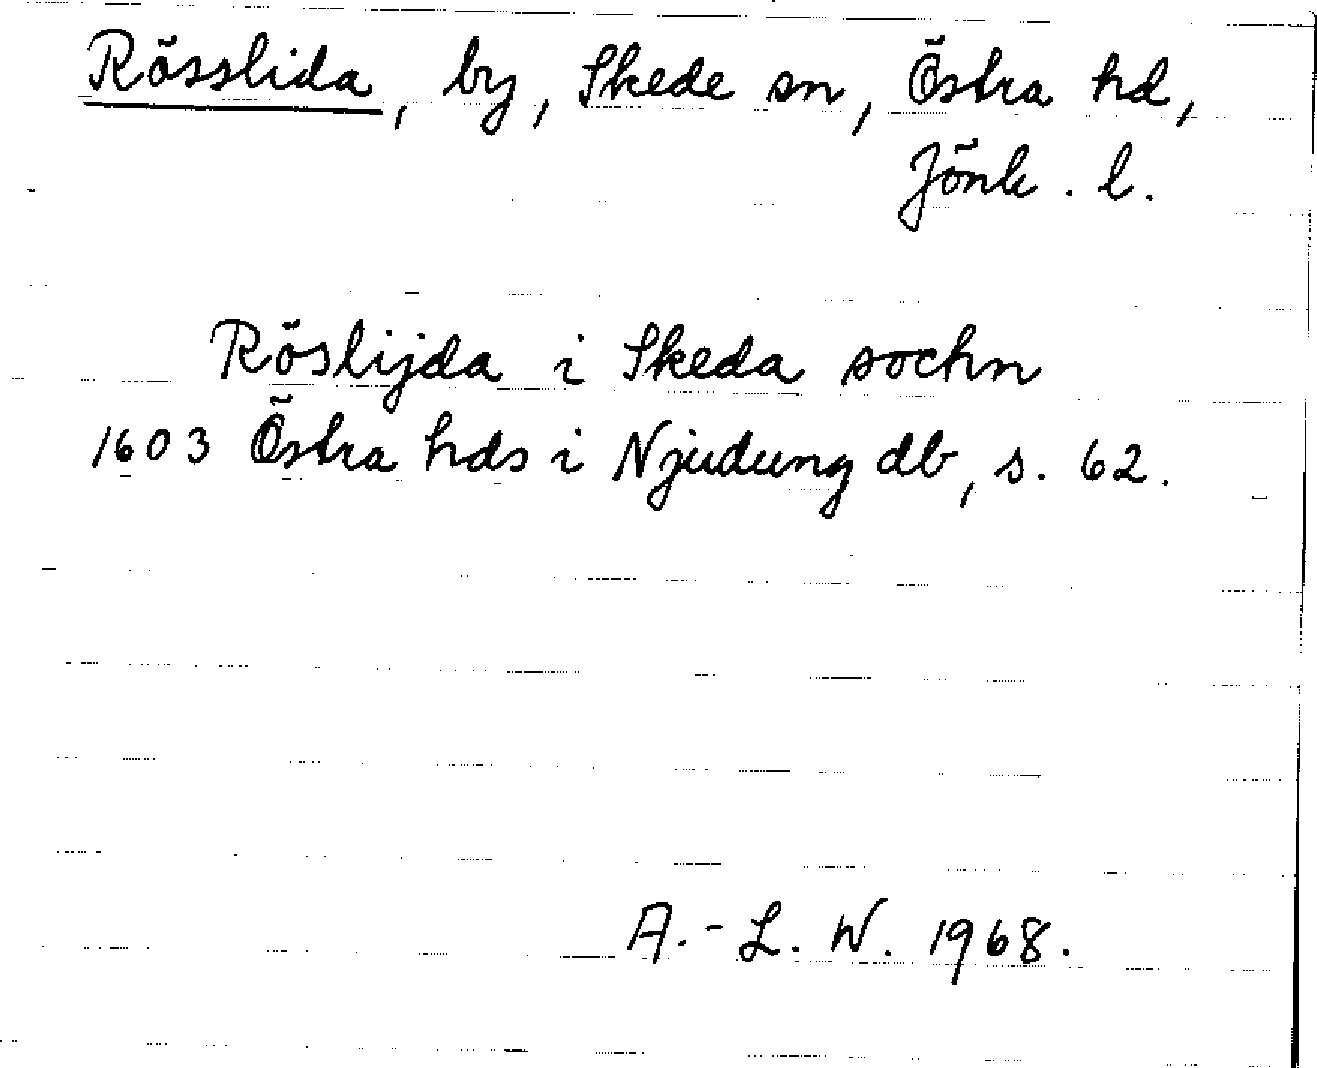 Rösslida, by, Skede sn, Östra hd,
Jönk. l.
Röslijda i Skeda sochn
1603 Östra hds i Njudung db, s. 62.
A.-L. W. 1968.